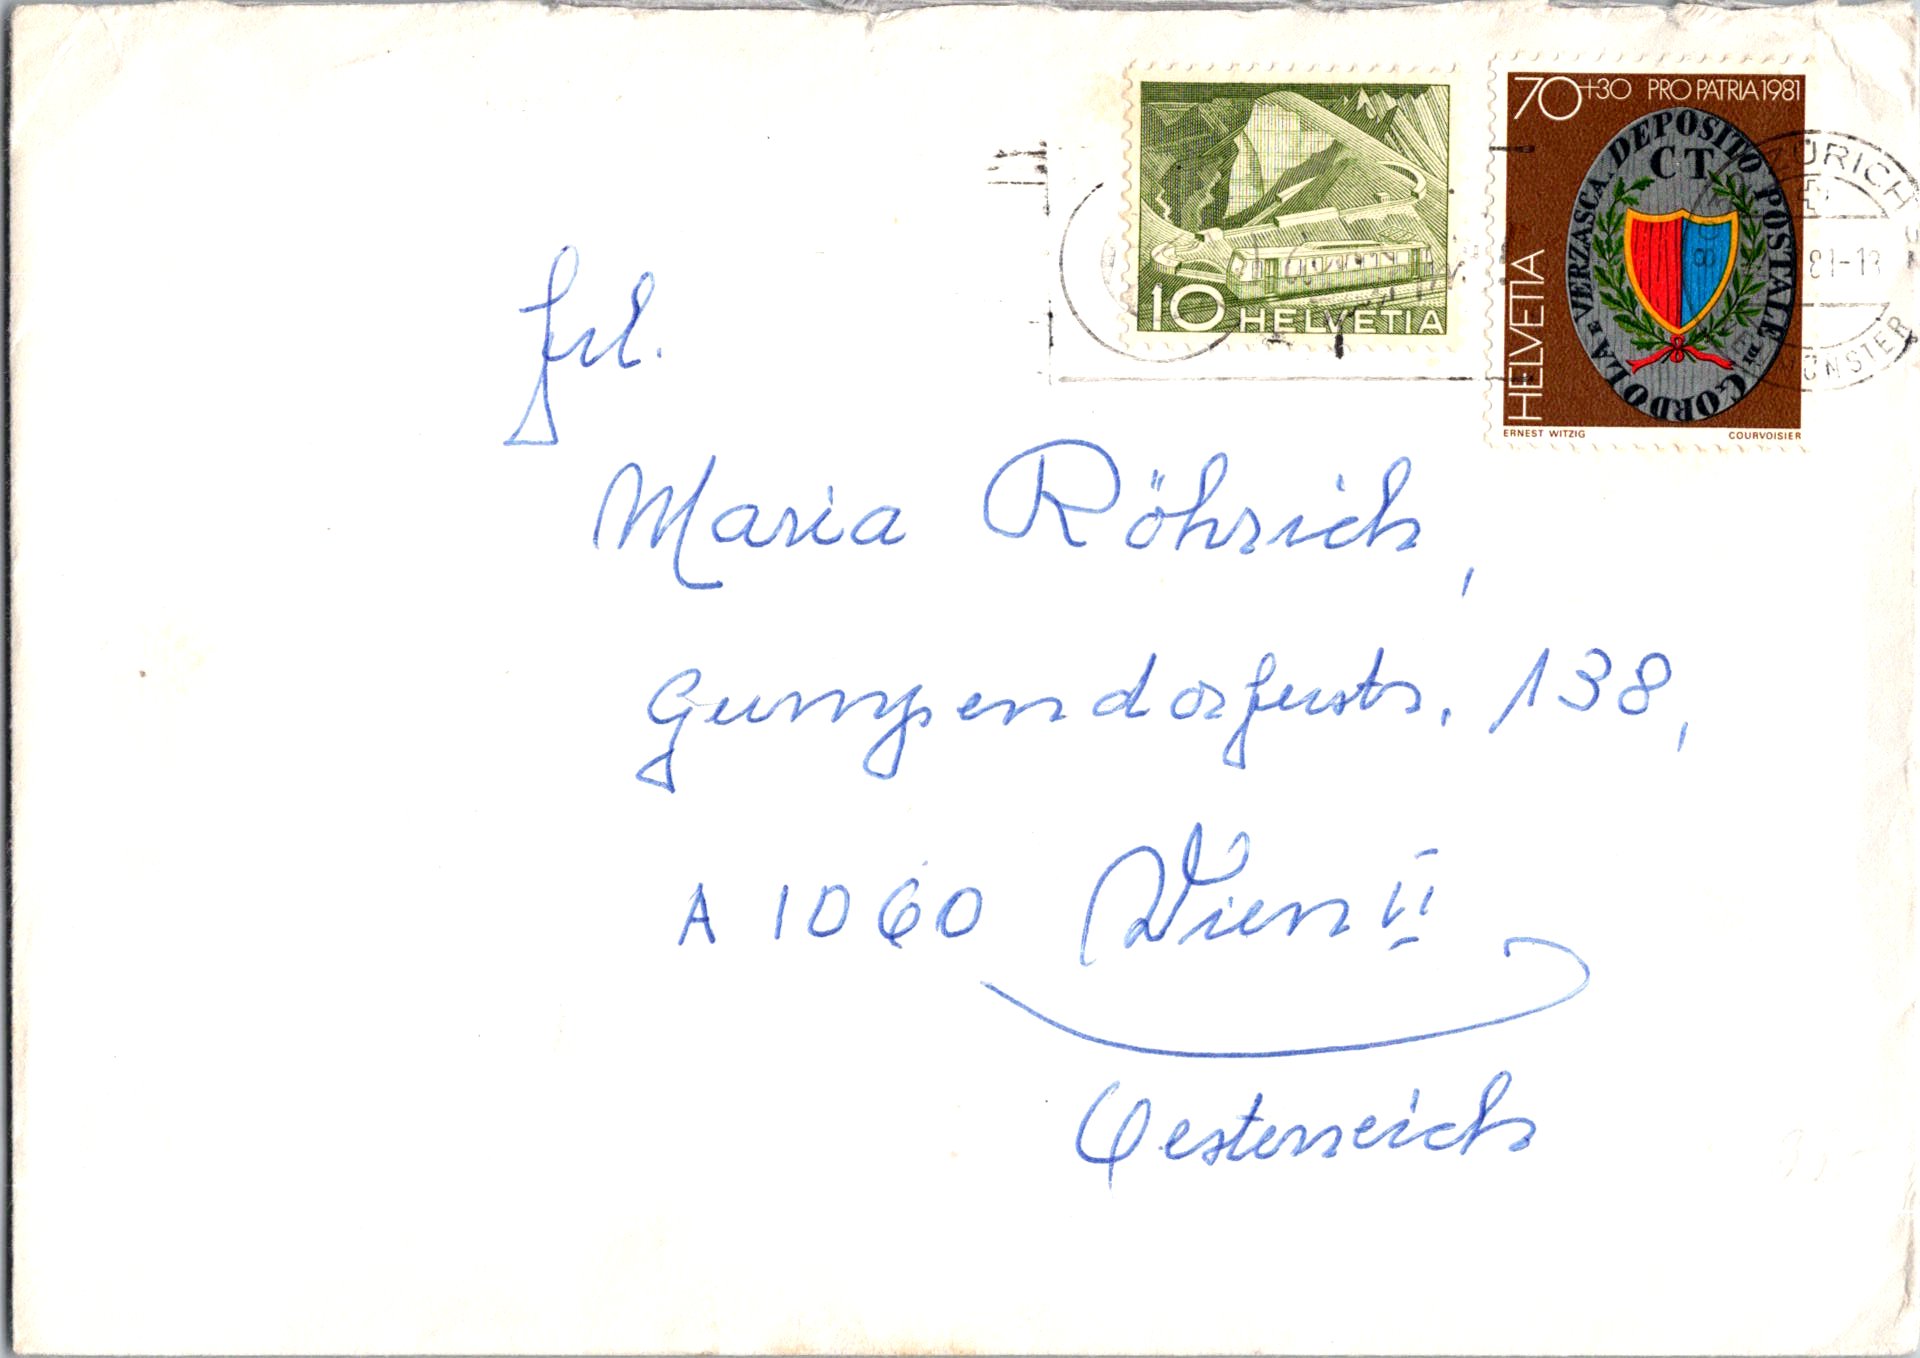 70+30 PRO PATRIA 1981
DEPOSITO POSTALE DI GORDOLA E VERZASCA.
CT.
HELVETIA
ERNEST WITZIG COURVOISIER
10 HELVETIA
ZÜRICH
81-18
MÜNSTER
Frl.
Maria Röhrich,
Gumpendorferstr. 138,
A 1060 Wien VI
Oesterreich